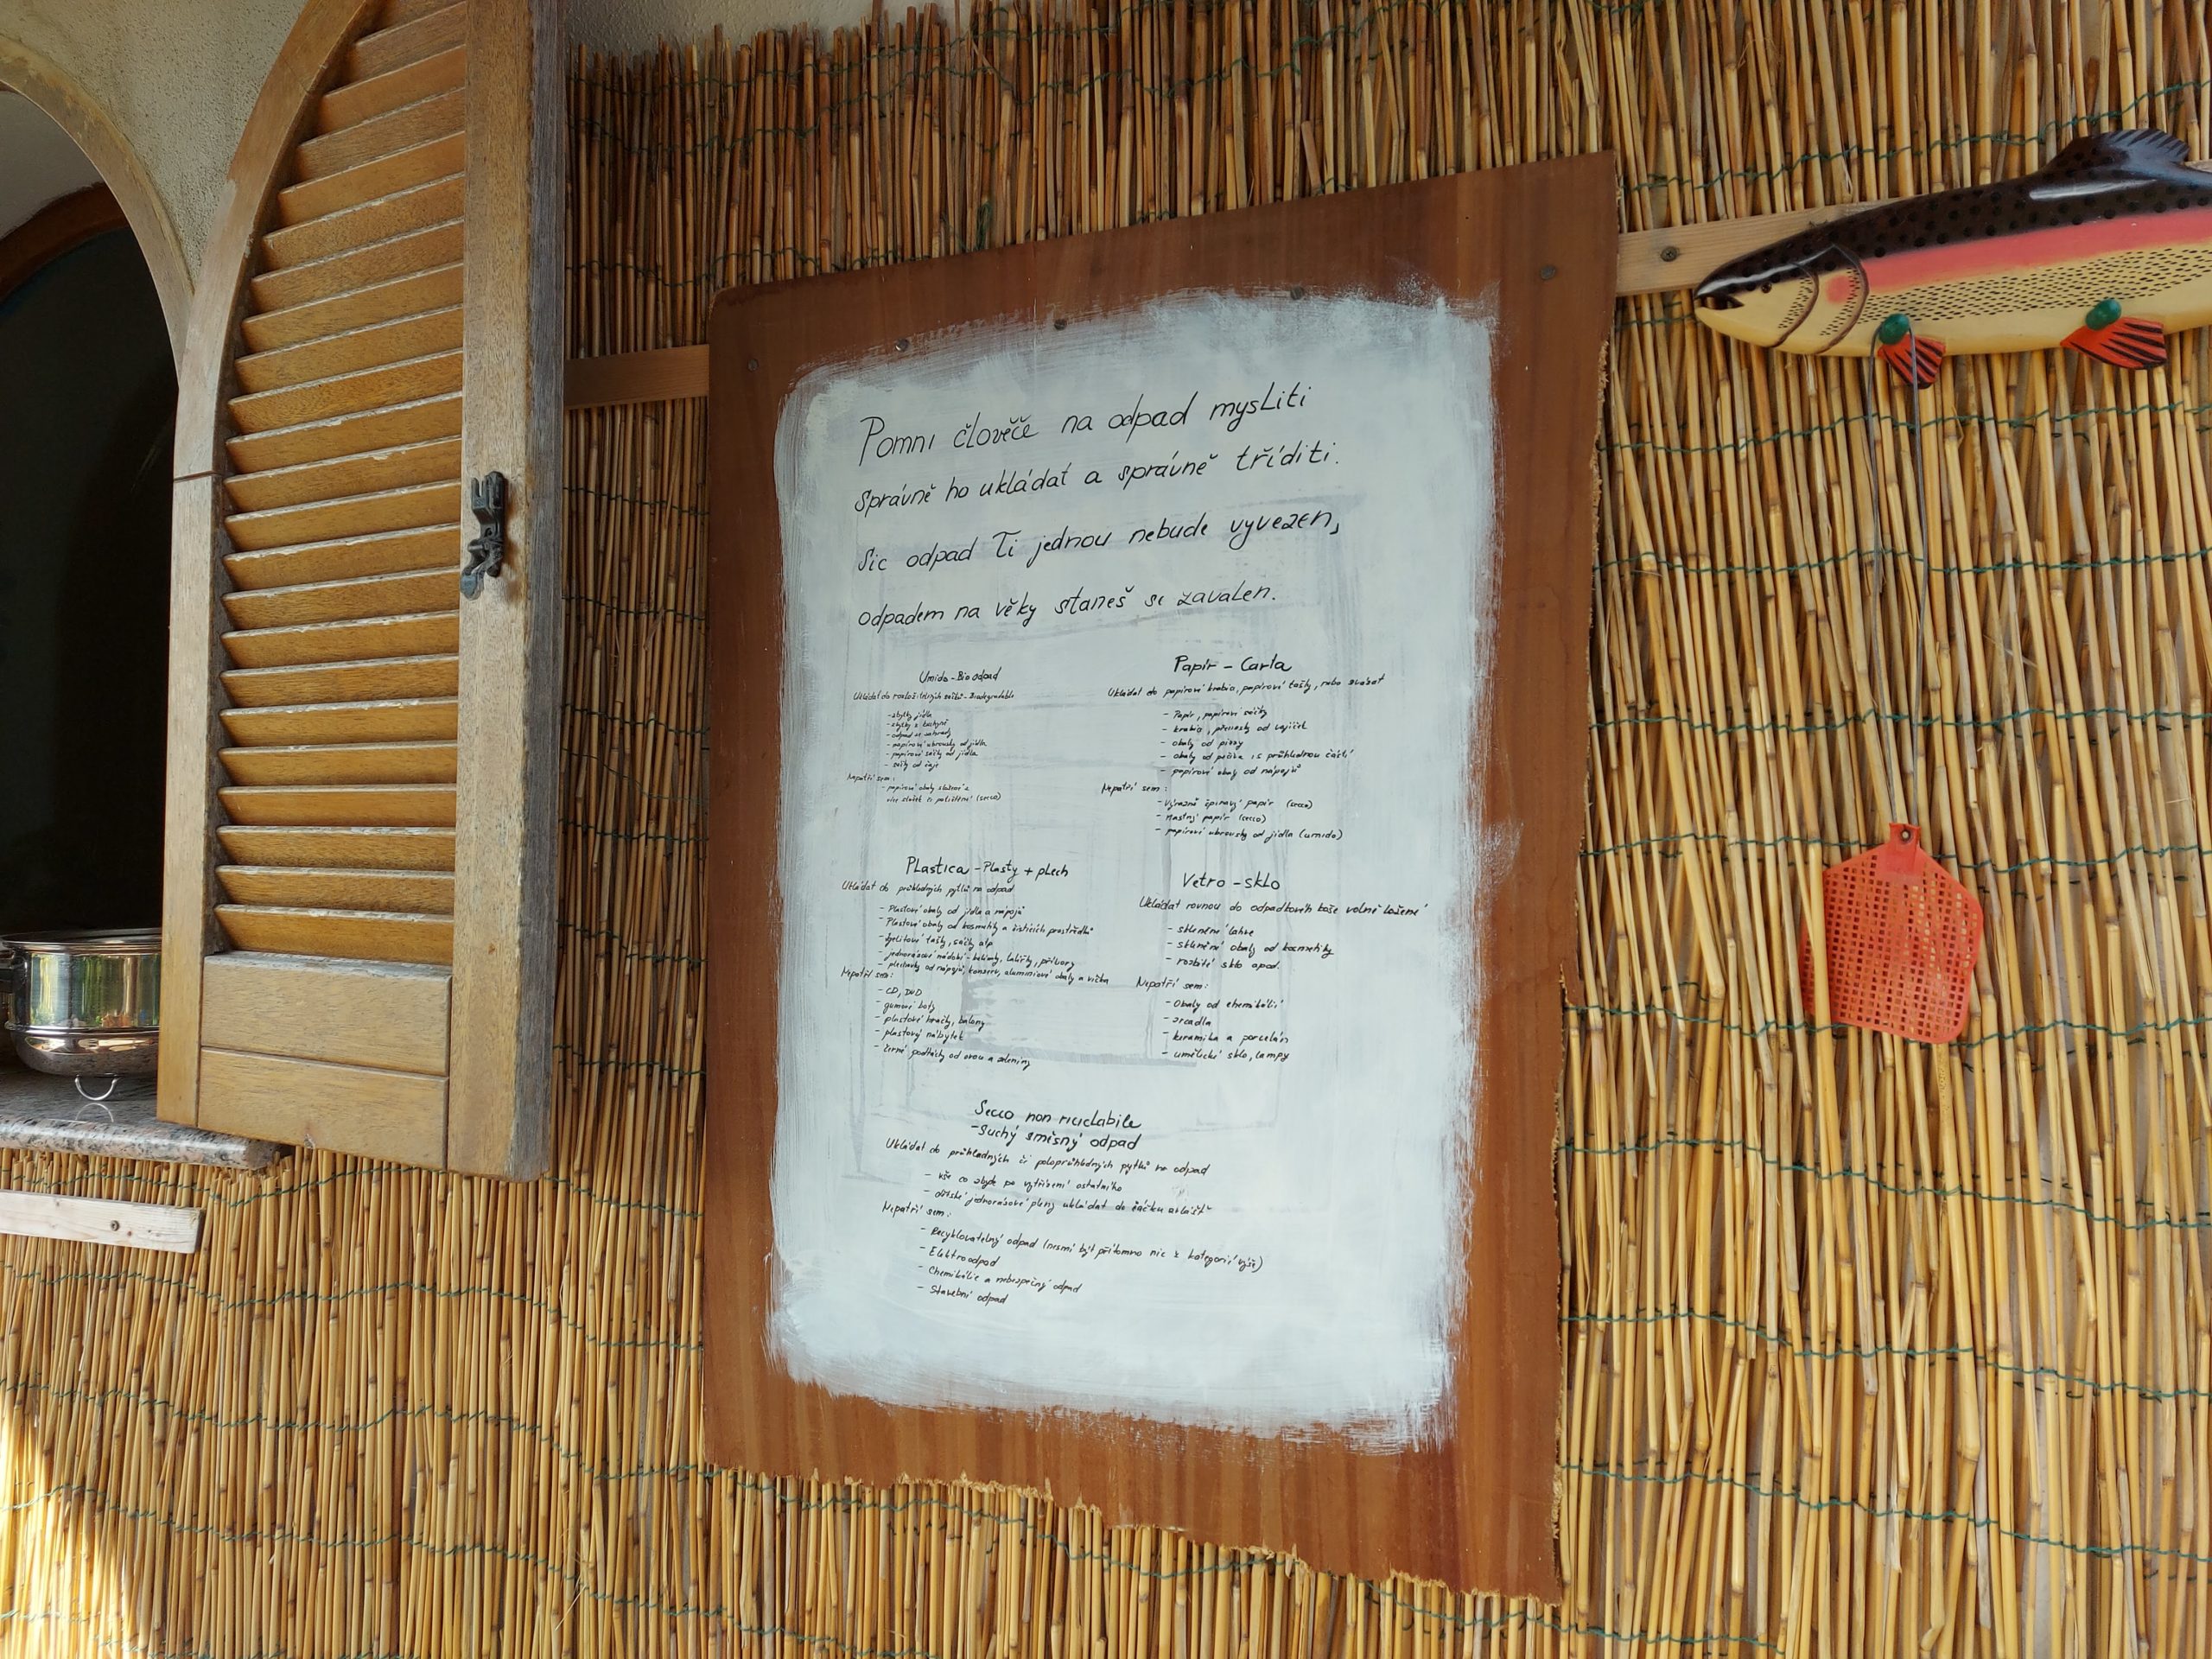 Pomni člověče na odpad mysliti
Správně ho ukládat a správně tříditi.
Sic odpad Ti jednou nebude vyvezen,
odpadem na věky staneš se zavalen.
Umido - Bio odpad
Ukládat do rozložitelných sáčků - Biodegradabile
- zbytky jídla
- zbytky z kuchyně
- odpad ze zahrady
- papírové ubrousky od jídla
- papírové sáčky od jídla
- sáčky od čaje
Nepatří sem:
- papírové obaly složené z
více složek či potištění (secco)
Papír - Carta
Ukládat do papírové krabice, papírové tašky, nebo svázat
- Papír, papírové sáčky
- krabice, přenosky od vajíček
- obaly od pizzy
- obaly od pečiva i s průhlednou částí
- papírové obaly od nápojů
Nepatří sem:
- Výrazně špinavý papír (secco)
- mastný papír (secco)
- papírové ubrousky od jídla (umido)
Plastica - Plasty + plech
Ukládat do průhledných pytlů na odpad
- Plastové obaly od jídla a nápojů
- Plastové obaly od kosmetiky a čistících prostředků
- Igelitové tašky, sáčky atp
- jednorázové nádobí - kelímky, talířky, příbory
- plechovky od nápojů, konzerv, aluminiové obaly a víčka
Nepatří sem:
- CD, DVD
- gumové boty
- plastové hračky, balony
- plastový nábytek
- černé podtácky od ovoce a zeleniny
Vetro - sklo
Ukládat rovnou do odpadkového koše volně ložené
- skleněné lahve
- skleněné obaly od kosmetiky
- rozbité sklo apod.
Nepatří sem:
- Obaly od chemikálií
- zrcadla
- keramika a porcelán
- umělecké sklo, lampy
Secco non riciclabile
- Suchý směsný odpad
Ukládat do průhledných či poloprůhledných pytlů na odpad
- vše co zbyde po vytřízení ostatního
- dětské jednorázové pleny ukládat do sáčku zvlášť
Nepatří sem:
- Recyklovatelný odpad (nesmí být přítomno nic z kategorií výše)
- Elektroodpad
- Chemikálie a nebezpečný odpad
- Stavební odpad